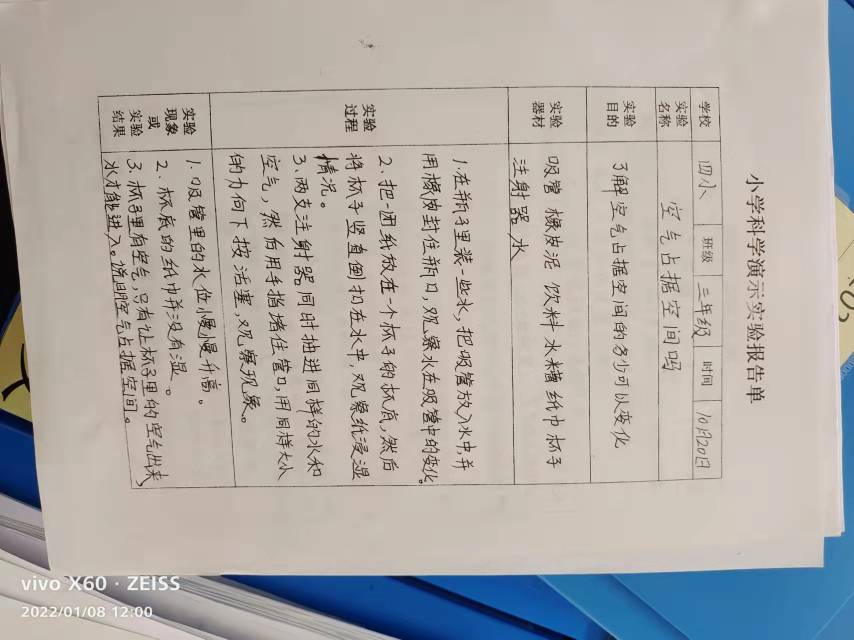 小学科学演示实验报告单
学校 四小 班级 三年级 时间 10月20日
实验名称 空气占据空间吗
实验目的 了解空气占据空间的多少可以变化
实验器材 吸管 橡皮泥 饮料 水槽 纸巾 杯子
注射器 水
实验过程 1.在瓶子里装一些水,把吸管放入水中,并
用橡皮封住瓶口,观察水在吸管中的变化。
2、把一团纸放在一个杯子的杯底,然后
将杯子竖直倒扣在水中,观察纸浸湿
情况。
3、两支注射器同时抽进同样的水和
空气,然后用手指堵住管口,用同样大小
的力向下按活塞,观察现象。
实验现象或实验结果 1.吸管里的水位慢慢升高。
2、杯底的纸巾并没有湿。
3、杯子里有空气,只有让杯子里的空气出来,
水才能进入。说明空气占据空间。
vivo X60 · ZEISS
2022/01/08 12:00